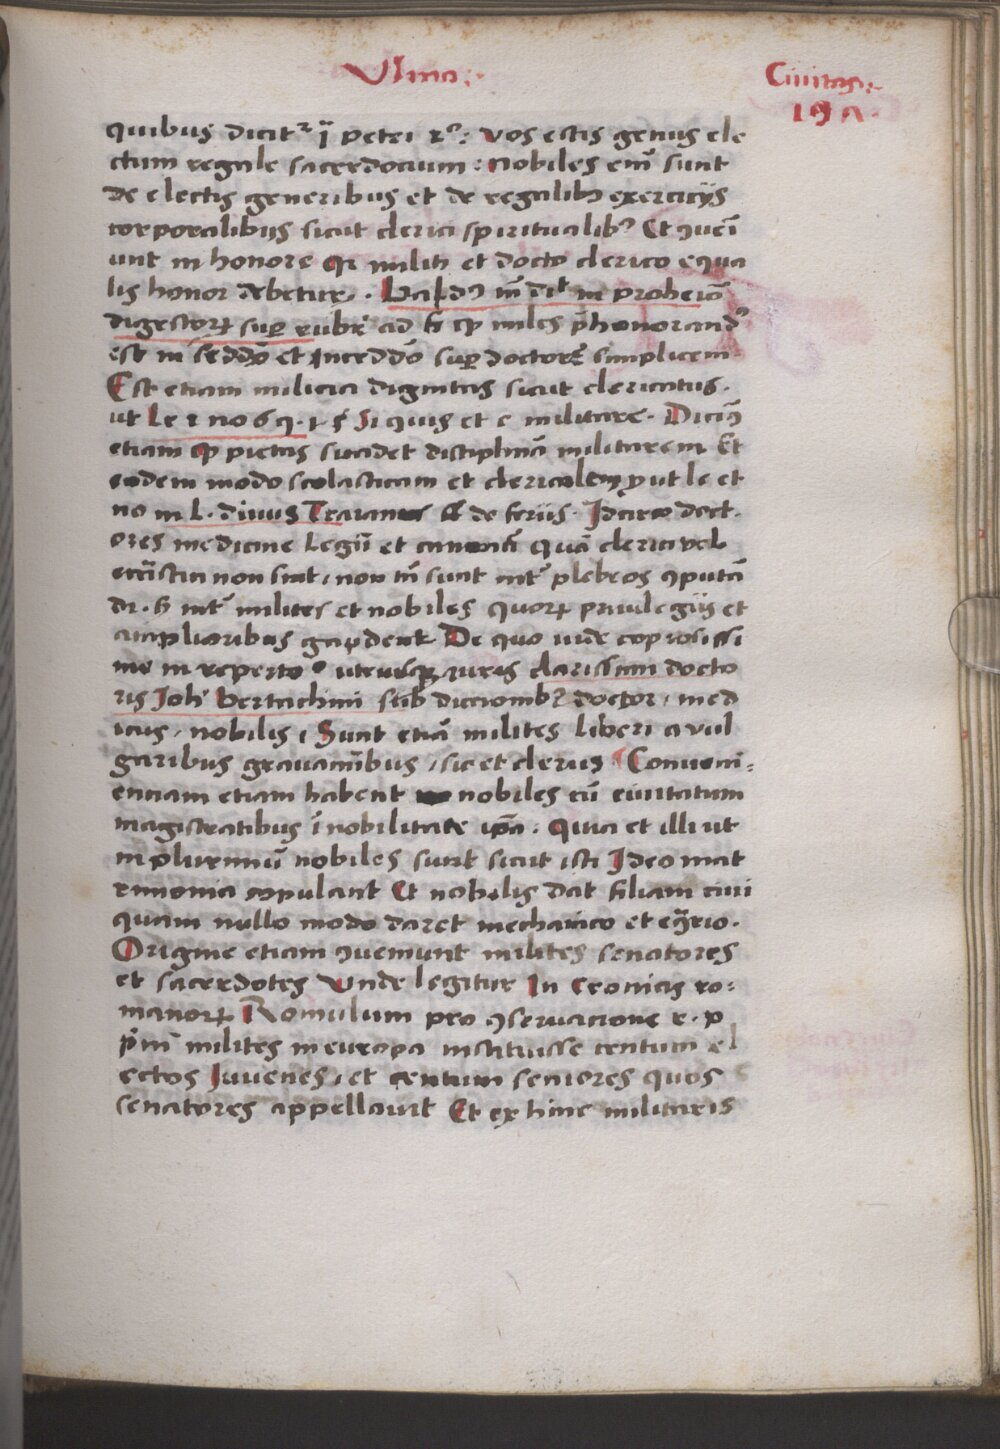 Vlma:·
Ciuitas:·
19 a·
quibus dicitr ij petri 2º: vos estis genus ele
ctum regale sacerdocium: nobiles em̄ sunt
de electis generibus et de regalibꝰ exercicijs
corporalibus sicut clerici spiritualibꝰ Et ꝯueī
unt in honore qr militi et docto clerico equa
lis honor debetur. Baldꝰ in
digestoꝝ suꝑ rubr ad ꝙ miles p̄honorandꝰ
est in seddo et inceddo suꝑ doctorē simplicem
Est etiam milicia dignitas sicut clericatus.
ut le 2 no 6 q. 1 § Si quis et c militare. Dicimꝰ
etiam ꝙ pietas suadet disciplinā militarem Et
eodem modo scolasticam et clericalem ut le et
no in L. diuus Traianus ff de feriis. Idcirco doct
ores medicine Legū et canonū quā clerici vel
ecc̄stici non sint, non tn̄ sunt int̄ plebeos ꝯputā
di. int̄ milites et nobiles quoꝝ priuilegijs et
amplioribus gaudent De quo vide copiosissi
me in reperto utriusqꝫ iuris clarissimi docto
ris Joh Bertachini sub diccionibꝰ doctor, med
icus, nobilis, Sunt etiā milites liberi a vul
garibus grauaminibus, sic et clerus Conueni-
enciam etiam habent nobiles cū ciuitatum
magistratibus ī nobilitate ipa. Quia et illi ut
in plurimū nobiles sunt sicut isti Ideo mat
rimonia copulant Et nobilis dat filiam ciui
quam nullo modo daret mechanico et
Origine etiam ꝯueniunt milites senatores
et sacerdotes Vnde legitur In Cronicis ro-
manoꝝ Romulum pro ꝯseruacione r. p
p̄m̄ milites in europa instituisse centum el
ectos Iuuenes, et centum seniores quos
senatores appellauit Et ex hinc militaris